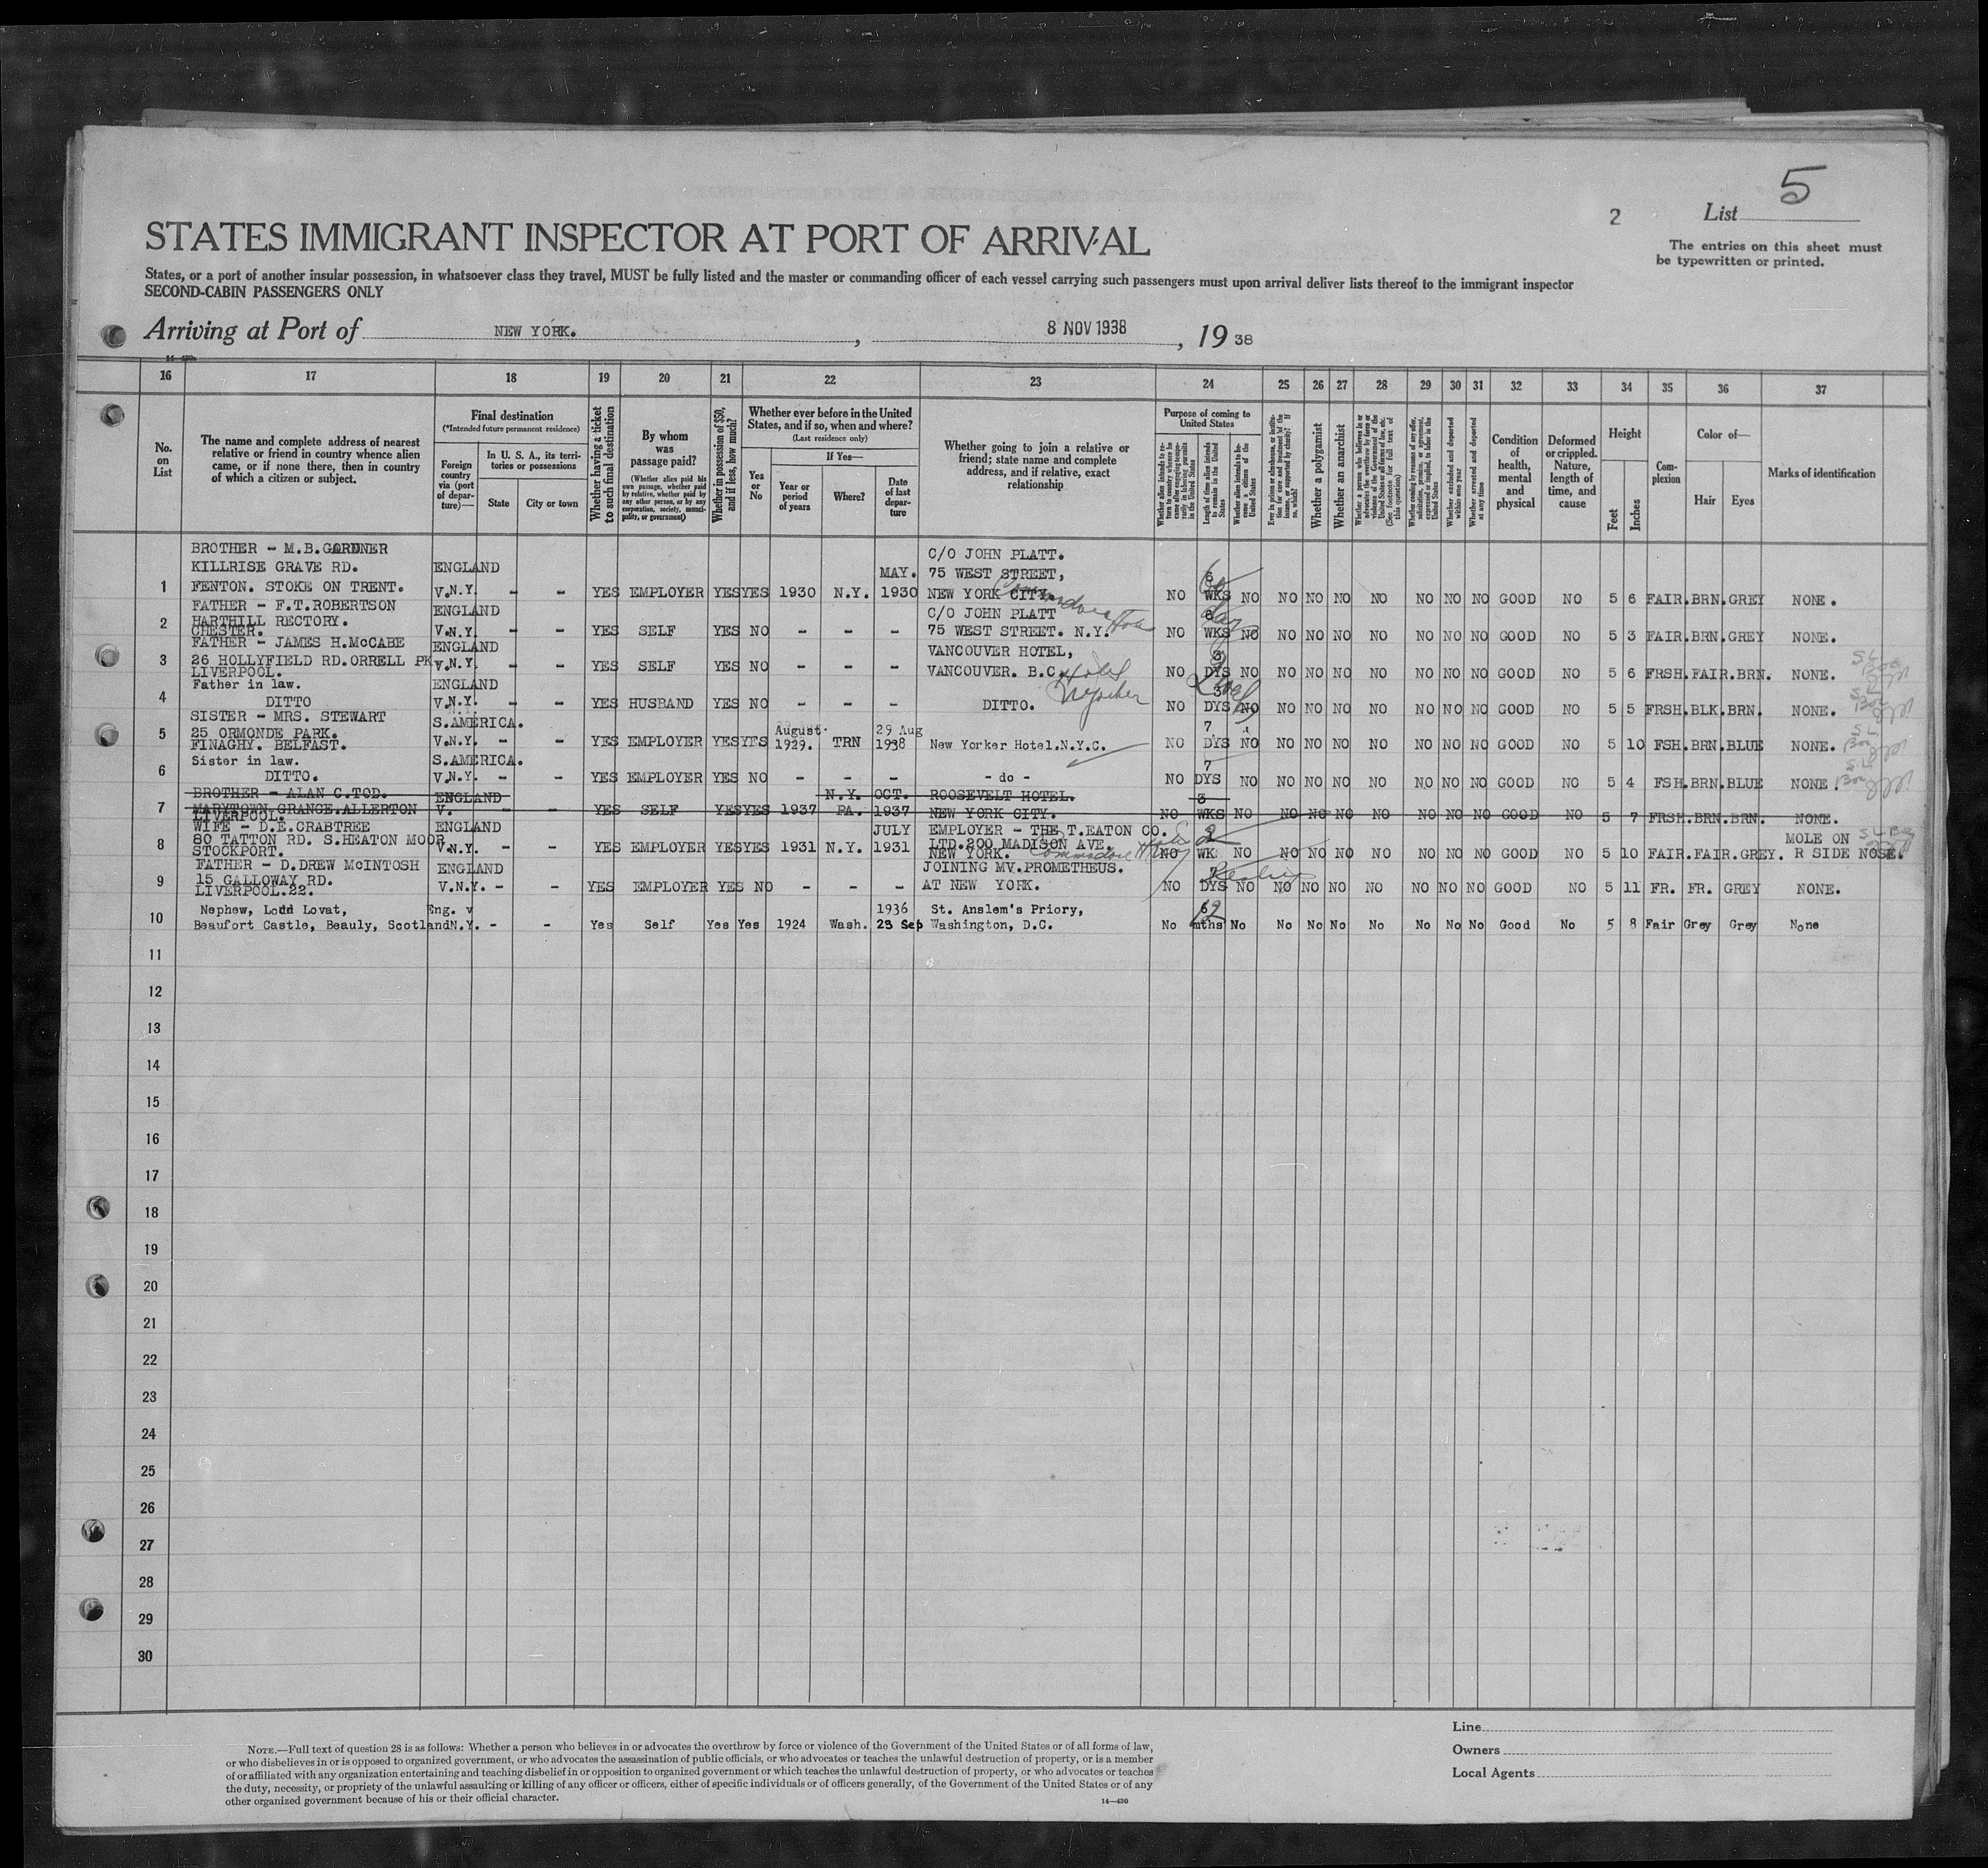 5
2
List
The entries on this sheet must
be typewritten or printed.
STATES IMMIGRANT INSPECTOR AT PORT OF ARRIVAL
States, or a port of another insular possession, in whatsoever class they travel, MUST be fully listed and the master or commanding officer of each vessel carrying such passengers must upon arrival deliver lists thereof to the immigrant inspector
SECOND-CABIN PASSENGERS ONLY
Arriving at Port of NEW YORK. , 8 NOV 1938 , 19 38
16 17 18 19 20 21 22 23 24 25 26 27 28 29 30 31 32 33 34 35 36 37
No. on List
The name and complete address of nearest relative or friend in country whence alien came, or if none there, then in country of which a citizen or subject.
Final destination
(*Intended future permanent residence)
Foreign country via (port of departure)—
In U. S. A., its territories or possessions
State City or town
Whether having a ticket to such final destination
By whom was passage paid?
(Whether alien paid his own passage, whether paid by relative, whether paid by any other person, or by any corporation, society, municipality, or government)
Whether in possession of $50, and if less, how much?
Whether ever before in the United States, and if so, when and where?
(Last residence only)
Yes or No
If Yes—
Year or period of years
Where?
Date of last departure
Whether going to join a relative or friend; state name and complete address, and if relative, exact relationship
Purpose of coming to United States
Whether alien intends to return to country whence he came after engaging temporarily in laboring pursuits in the United States
Length of time alien intends to remain in the United States
Whether alien intends to become a citizen of the United States
Ever in prison or almshouse, or institution for care and treatment of the insane, or supported by charity? If so, which?
Whether a polygamist
Whether an anarchist
Whether a person who believes in or advocates the overthrow by force or violence of the Government of the United States or all forms of law, etc. (See footnote for full text of this question)
Whether coming by reason of any offer, solicitation, promise, or agreement, expressed or implied, to labor in the United States
Whether excluded and deported within one year
Whether arrested and deported at any time
Condition of health, mental and physical
Deformed or crippled. Nature, length of time, and cause
Height
Feet Inches
Complexion
Color of—
Hair Eyes
Marks of identification
BROTHER - M.B.GARDNER C/O JOHN PLATT.
KILLRISE GRAVE RD. ENGLAND MAY. 75 WEST STREET, 6
1 FENTON. STOKE ON TRENT. V.N.Y. - - YES EMPLOYER YES YES 1930 N.Y. 1930 NEW YORK CITY. NO WKS NO NO NO NO NO NO NO NO GOOD NO 5 6 FAIR.BRN.GREY NONE.
Commodore Hotel
FATHER - F.T.ROBERTSON ENGLAND C/O JOHN PLATT 6
2 HARTHILL RECTORY. CHESTER. V.N.Y. - - YES SELF YES NO - - - 75 WEST STREET. N.Y. NO WKS NO NO NO NO NO NO NO NO GOOD NO 5 3 FAIR.BRN.GREY NONE.
FATHER - JAMES H.McCABE ENGLAND VANCOUVER HOTEL, 3
3 26 HOLLYFIELD RD.ORRELL PK V.N.Y. - - YES SELF YES NO - - - VANCOUVER. B.C. NO DYS NO NO NO NO NO NO NO NO GOOD NO 5 6 FRSH.FAIR.BRN. NONE.
LIVERPOOL.
Hotel
Father in law. ENGLAND 3
4 DITTO V.N.Y. - - YES HUSBAND YES NO - - - DITTO. NO DYS NO NO NO NO NO NO NO NO GOOD NO 5 5 FRSH.BLK.BRN. NONE.
SISTER - MRS. STEWART S.AMERICA. August. 29 Aug 7
5 25 ORMONDE PARK. FINAGHY. BELFAST. V.N.Y. - - YES EMPLOYER YES YES 1929. TRN 1938 New Yorker Hotel.N.Y.C. NO DYS NO NO NO NO NO NO NO NO GOOD NO 5 10 FSH.BRN.BLUE NONE.
Sister in law. S.AMERICA. 7
6 DITTO. V.N.Y. - - YES EMPLOYER YES NO - - - - do - NO DYS NO NO NO NO NO NO NO NO GOOD NO 5 4 FSH.BRN.BLUE NONE.
BROTHER - ALAN C.TOD. ENGLAND N.Y. OCT. ROOSEVELT HOTEL. 3
7 MARYTOWN GRANGE.ALLERTON LIVERPOOL. V. - - YES SELF YES YES 1937 PA. 1937 NEW YORK CITY. NO WKS NO NO NO NO NO NO NO NO GOOD NO 5 7 FRSH.BRN.BRN. NONE.
WIFE - D.E.CRABTREE ENGLAND JULY EMPLOYER - THE T.EATON CO. 2 MOLE ON
8 80 TATTON RD. S.HEATON MOOR STOCKPORT. V.N.Y. - - YES EMPLOYER YES YES 1931 N.Y. 1931 LTD.200 MADISON AVE. NEW YORK. NO WK NO NO NO NO NO NO NO NO GOOD NO 5 10 FAIR.FAIR.GREY. R SIDE NOSE.
Commodore
FATHER - D.DREW McINTOSH ENGLAND JOINING MV.PROMETHEUS.
9 15 GALLOWAY RD. LIVERPOOL.22. V.N.Y. - - YES EMPLOYER YES NO - - - AT NEW YORK. NO DYS NO NO NO NO NO NO NO NO GOOD NO 5 11 FR. FR. GREY NONE.
Nephew, Lord Lovat, Eng. v 1936 St. Anslem's Priory, 6
10 Beaufort Castle, Beauly, Scotland N.Y. - - Yes Self Yes Yes 1924 Wash. 23 Sep Washington, D.C. No mths No No No No No No No No Good No 5 8 Fair Grey Grey None
11
12
13
14
15
16
17
18
19
20
21
22
23
24
25
26
27
28
29
30
Line
Owners
Local Agents
NOTE.—Full text of question 28 is as follows: Whether a person who believes in or advocates the overthrow by force or violence of the Government of the United States or of all forms of law,
or who disbelieves in or is opposed to organized government, or who advocates the assassination of public officials, or who advocates or teaches the unlawful destruction of property, or is a member
of or affiliated with any organization entertaining and teaching disbelief in or opposition to organized government or which teaches the unlawful destruction of property, or who advocates or teaches
the duty, necessity, or propriety of the unlawful assaulting or killing of any officer or officers, either of specific individuals or of officers generally, of the Government of the United States or of any
other organized government because of his or their official character.
14—430